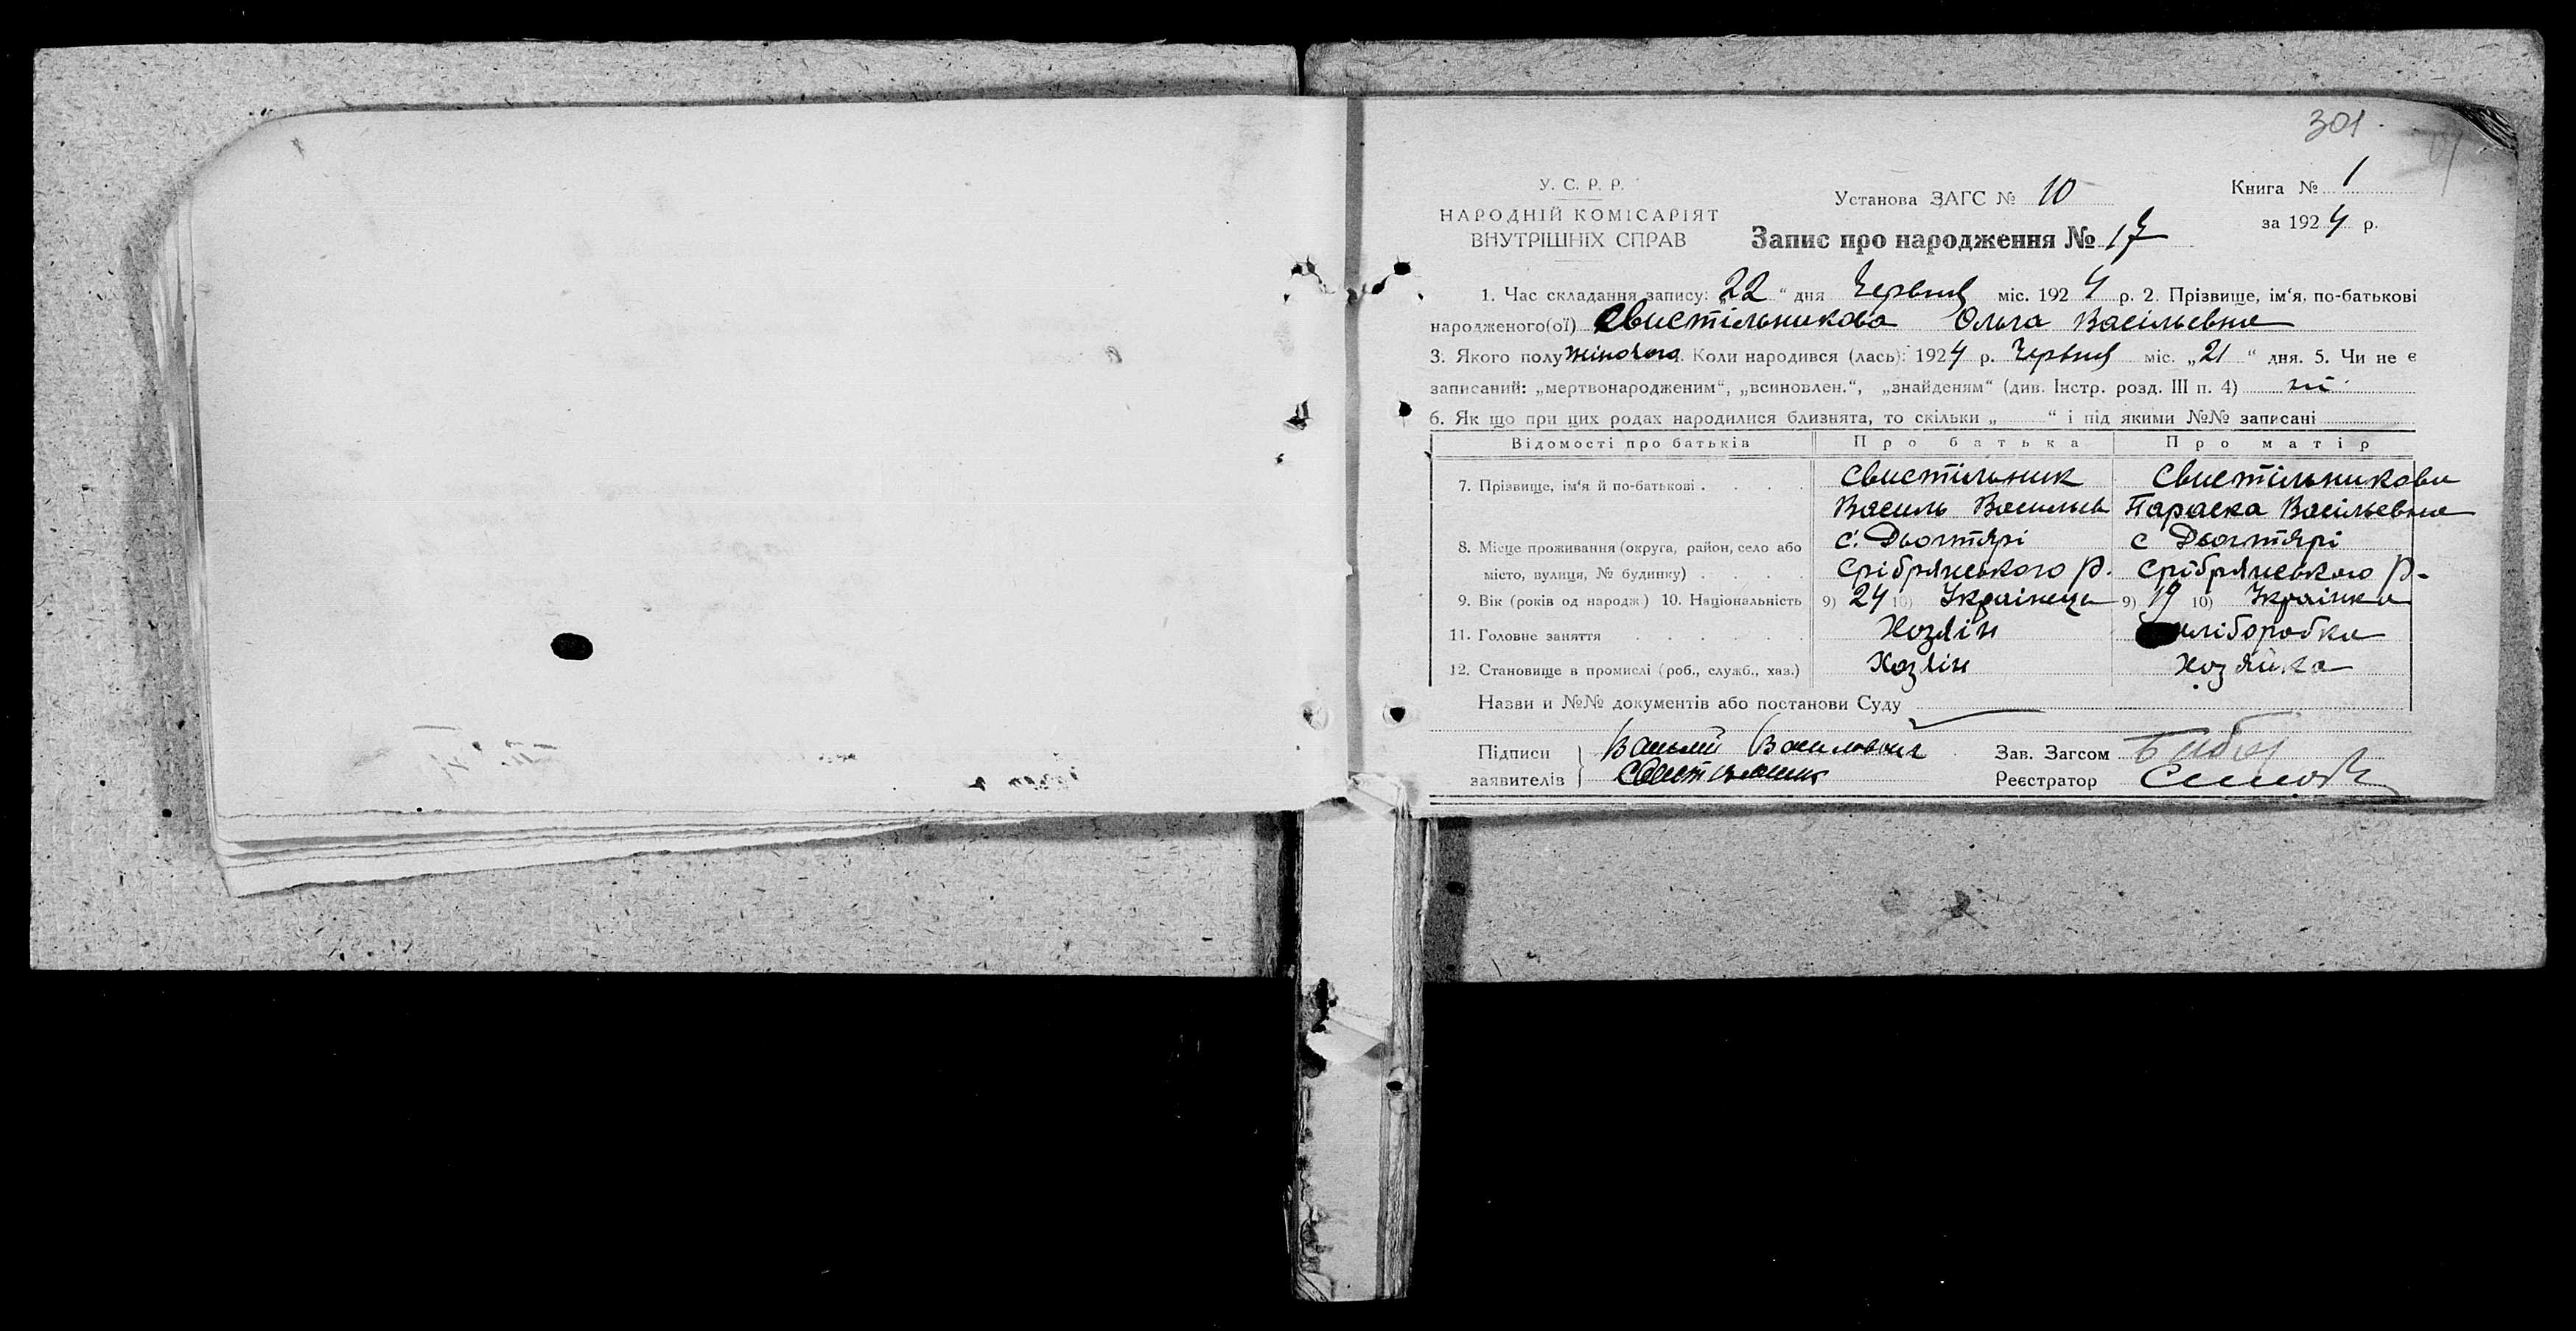 301
У. С. Р. Р.
НАРОДНІЙ КОМІСАРІЯТ
ВНУТРІШНІХ СПРАВ
Установа ЗАГС № 10
Книга № 1
за 1924 р.
Запис про народження № 17
1. Час складання запису: „22“ дня Червня міс. 1924 р. 2. Прізвище, ім‘я, по-батькові
народженого(ої) Свистільникова Ольга Васільевна
3. Якого полу жіночого. Коли народився (лась): 1924 р. Червня міс. „21“ дня. 5. Чи не є
записаний: „мертвонародженим“, „всиновлен.“, „знайденям“ (див. Інстр. розд. III п. 4) ні
6. Як що при цих родах народилися близнята, то скільки „ “ і під якими №№ записані
Відомості про батьків Про батька Про матір
7. Прізвище, ім‘я й по-батькові . . . . Свистільник Свистільникова
Василь Васильев Параска Васільевна
8. Місце проживання (округа, район, село або с. Дьогтярі с Дьогтярі
місто, вулиця, № будинку) . . . . Срібрянського р. Срібрянського р.
9. Вік (років од народж) 10. Національність 9) 24 10) Українець 9) 19 10) Українка
11. Головне заняття . . . . . . Хозяін хліборобка
12. Становище в промислі (роб., служб., хаз.) Хозяін Хозяйка
Назви и №№ документів або постанови Суду
Підписи Василий Зав. Загсом
заявителів Свистильник Реєстратор